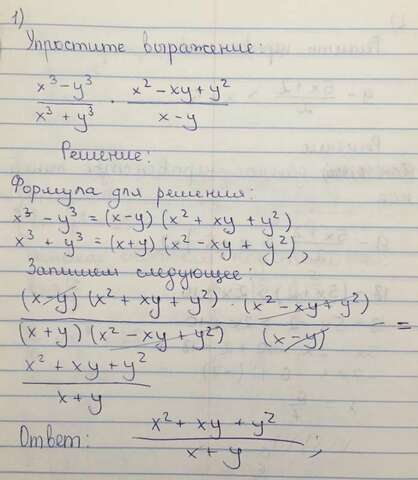 1)
Упростите выражение:
x³ - y³ / x³ + y³ · x² - xy + y² / x - y
Решение:
Формула для решения:
x³ - y³ = (x-y) (x² + xy + y²)
x³ + y³ = (x+y) (x² - xy + y²),
Запишем следующее:
(x-y) (x² + xy + y²) · (x² - xy + y²)
(x+y) (x² - xy + y²) (x-y) =
x² + xy + y²
x + y
Ответ: x² + xy + y² / x + y ;